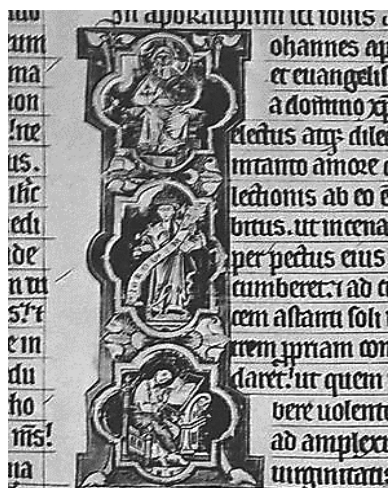 um
ma
non
us.
edi
ade
e in
du
ho
m̄s!
na
ohannes ap
et euangeli
a domino
electus atq; dile
intanto amore
lectionis ab eo
bitus. ut incena
per pectus eius
cumberet. ⁊ ad
cem astanti soli
p̱priam com
daret! ut quem
bere uolent
ad amplex
uirginitatis